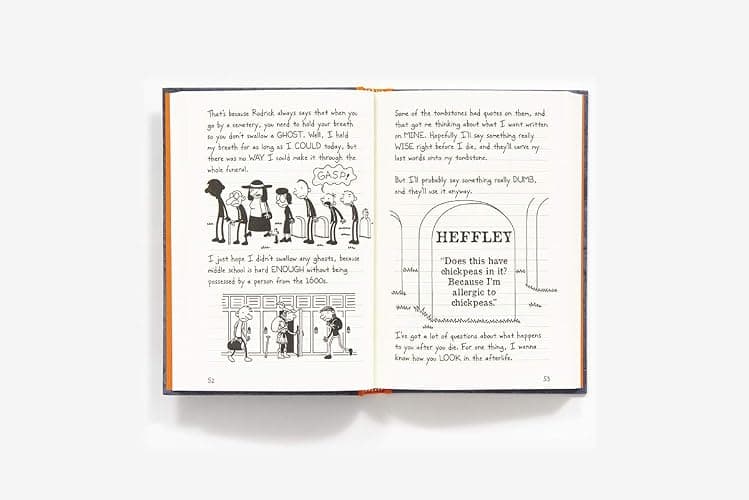 That's because Rodrick always says that when you
go by a cemetery, you need to hold your breath
so you don't swallow a GHOST. Well, I held
my breath for as long as I COULD today, but
there was no WAY I could make it through the
whole funeral.
GASP!
I just hope I didn't swallow any ghosts, because
middle school is hard ENOUGH without being
possessed by a person from the 1600s.
52
Some of the tombstones had quotes on them, and
that got me thinking about what I want written
on MINE. Hopefully I'll say something really
WISE right before I die, and they'll carve my
last words onto my tombstone.
But I'll probably say something really DUMB,
and they'll use it anyway.
HEFFLEY
"Does this have
chickpeas in it?
Because I'm
allergic to
chickpeas."
I've got a lot of questions about what happens
to you after you die. For one thing, I wanna
know how you LOOK in the afterlife.
53